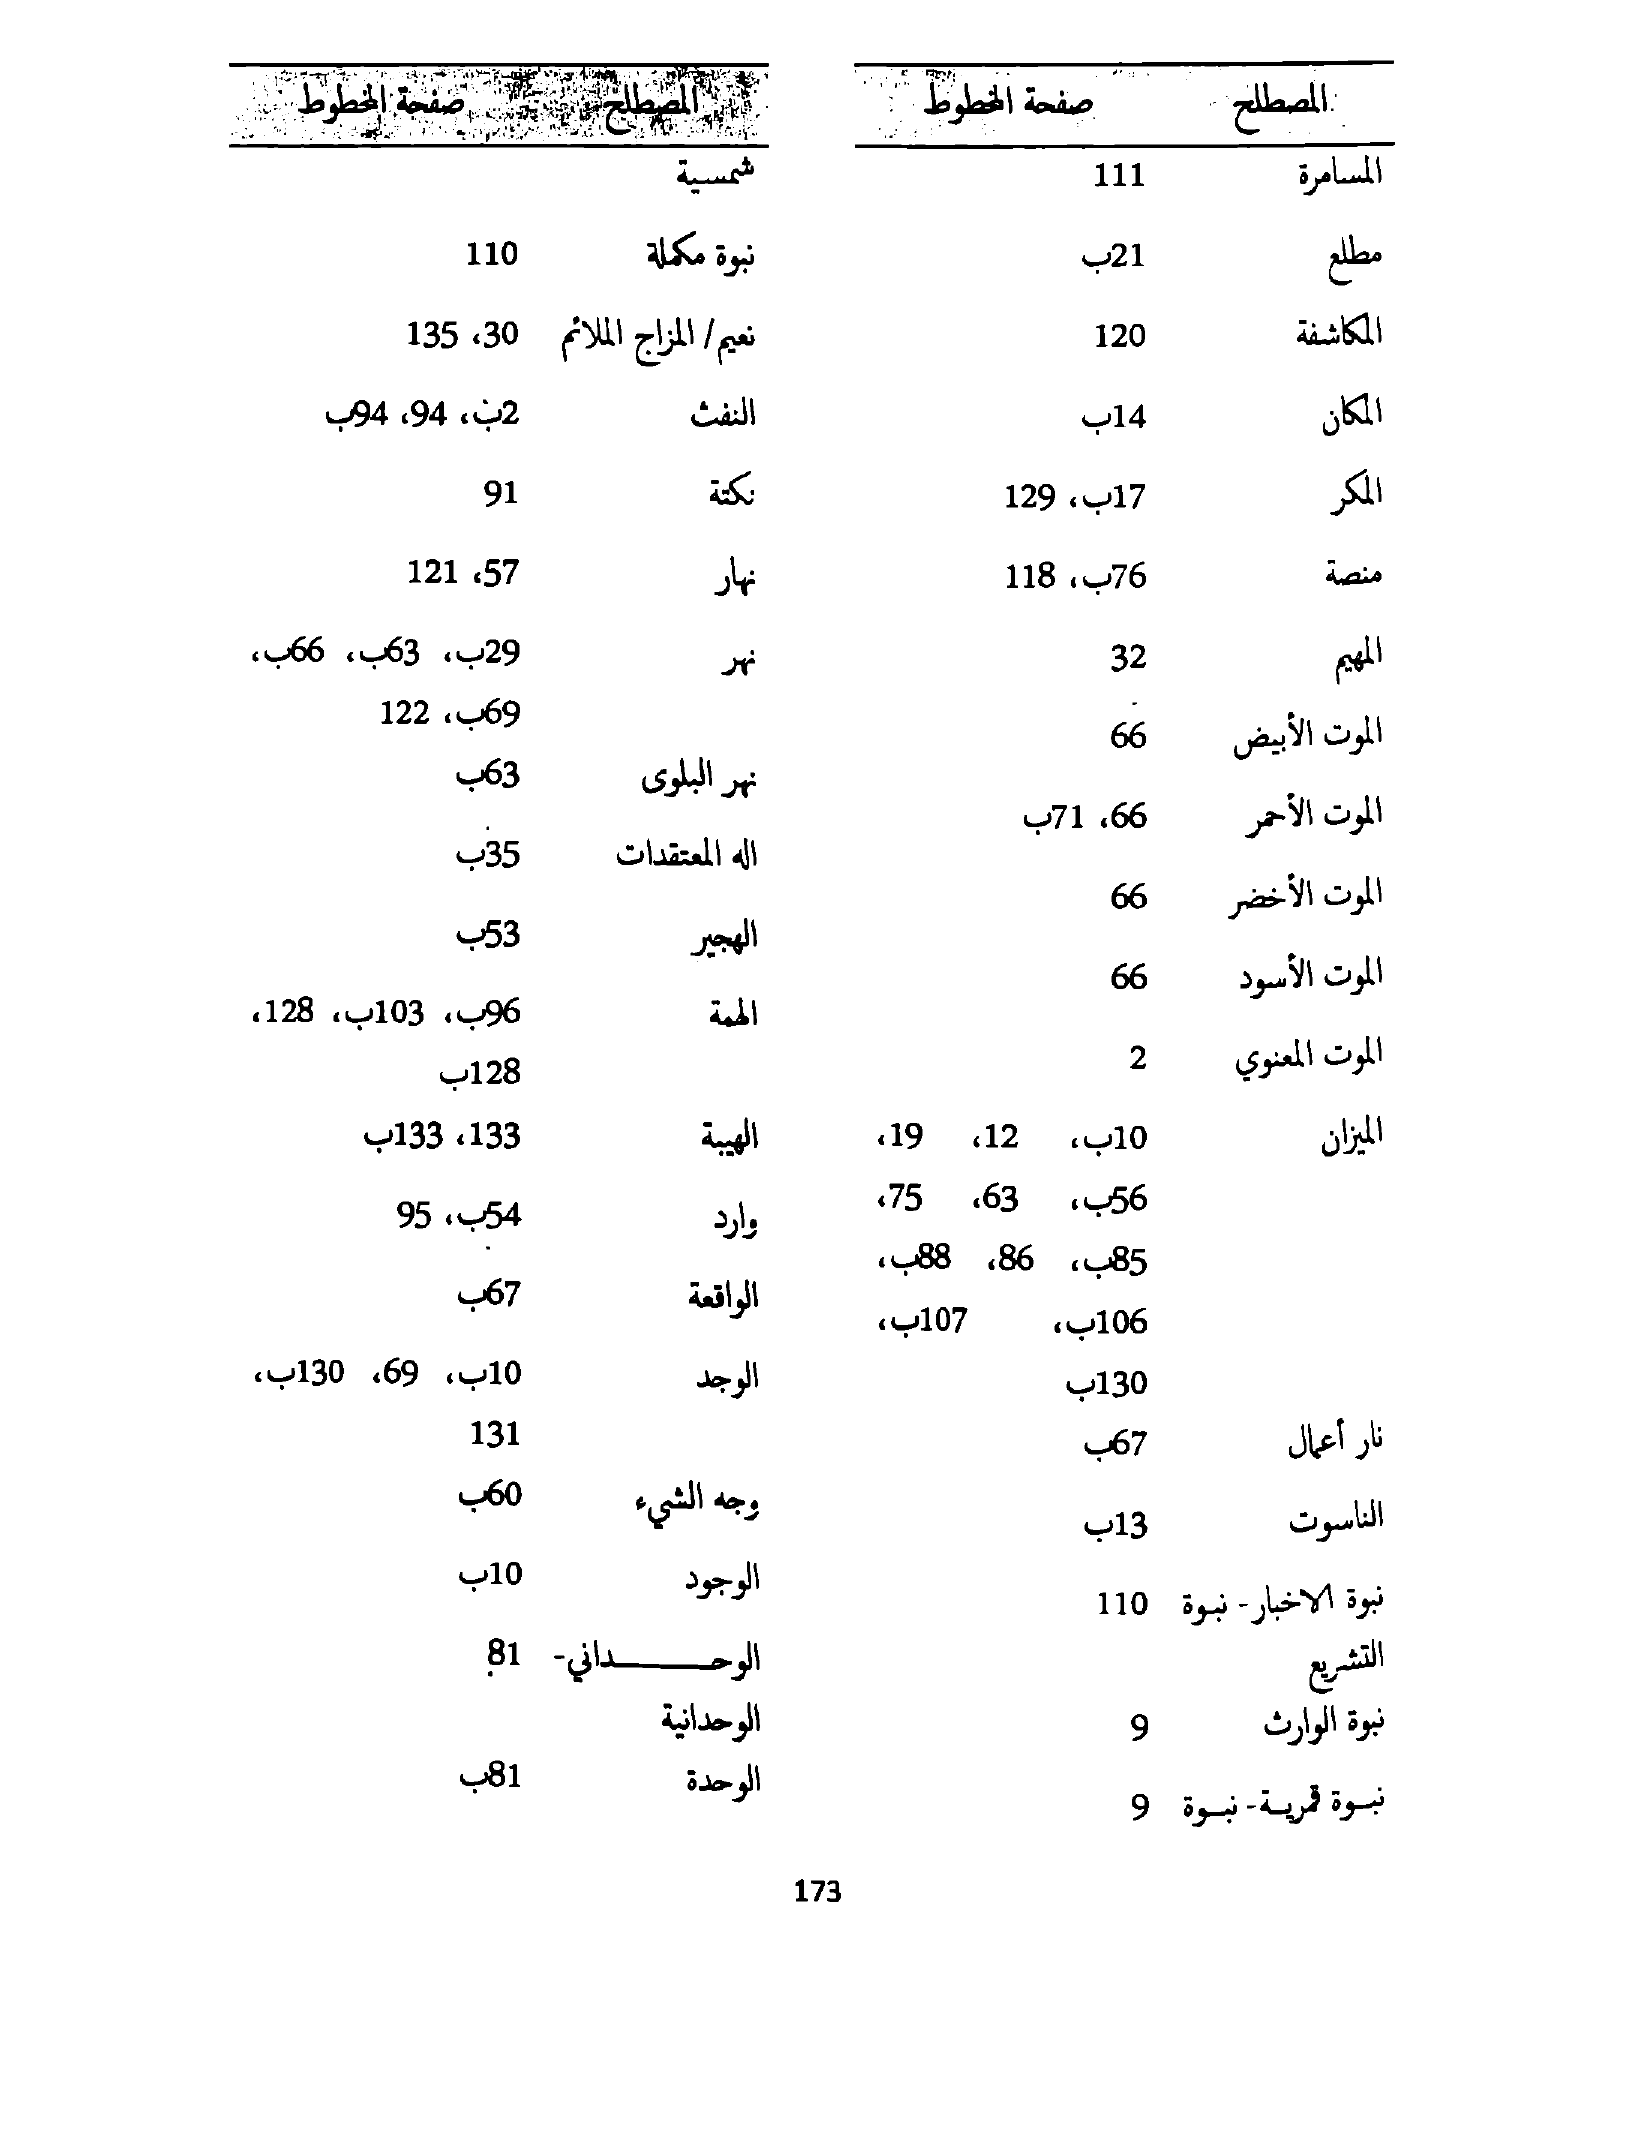 المصطلح صفحة المخطوط
المسامرة 111
مطلع 21ب
المكاشفة 120
المكان 14ب
المكر 17ب، 129
منصة 76ب، 118
المهيم 32
الموت الأبيض 66
الموت الأحمر 66، 71ب
الموت الأخضر 66
الموت الأسود 66
الموت المعنوي 2
الميزان 10ب، 12، 19،
56ب، 63، 75،
85ب، 86، 88ب،
106ب، 107ب،
130ب
نار أعمال 67ب
الناسوت 13ب
نبوة الاخبار- نبوة 110
التشريع
نبوة الوارث 9
نبوة قمرية- نبوة 9
المصطلح صفحة المخطوط
شمسية
نبوة مكملة 110
نعيم/ المزاج الملائم 30، 135
النفث 2ب، 94، 94ب
نكتة 91
نهار 57، 121
نهر 29ب، 63ب، 66ب،
69ب، 122
نهر البلوى 63ب
اله المعتقدات 35ب
الهجير 53ب
الهمة 96ب، 103ب، 128،
128ب
الهيبة 133، 133ب
وارد 54ب، 95
الواقعة 67ب
الوجد 10ب، 69، 130ب،
131
وجه الشيء 60ب
الوجود 10ب
الوحـــــداني- 81
الوحدانية
الوحدة 81ب
173